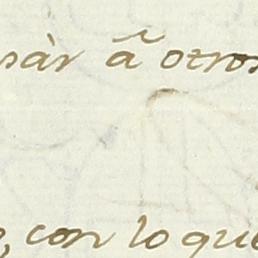 sàr â otros
, con lo que